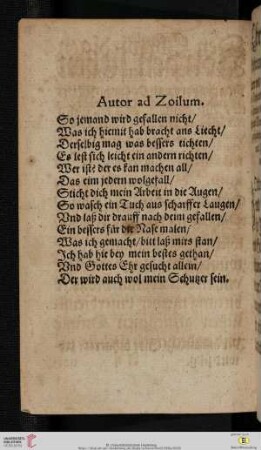 Autor ad Zoilum.
So jemand wird gefallen nicht/
Was ich hiemit hab bracht ans Liecht/
Derselbig mag was bessers tichten/
Es lest sich leicht ein andern richten/
Wer ists der es kan machen all/
Das eim jedern wolgefall/
Sticht dich mein Arbeit in die Augen/
So wasch ein Tuch aus scharffer Laugen/
Vnd laß dir drauff nach deim gefallen/
Ein bessers für die Nase malen/
Was ich gemacht/ bitt laß mirs stan/
Ich hab hie bey mein bestes gethan/
Vnd Gottes Ehr gesucht allein/
Der wird auch wol mein Schutzer sein.